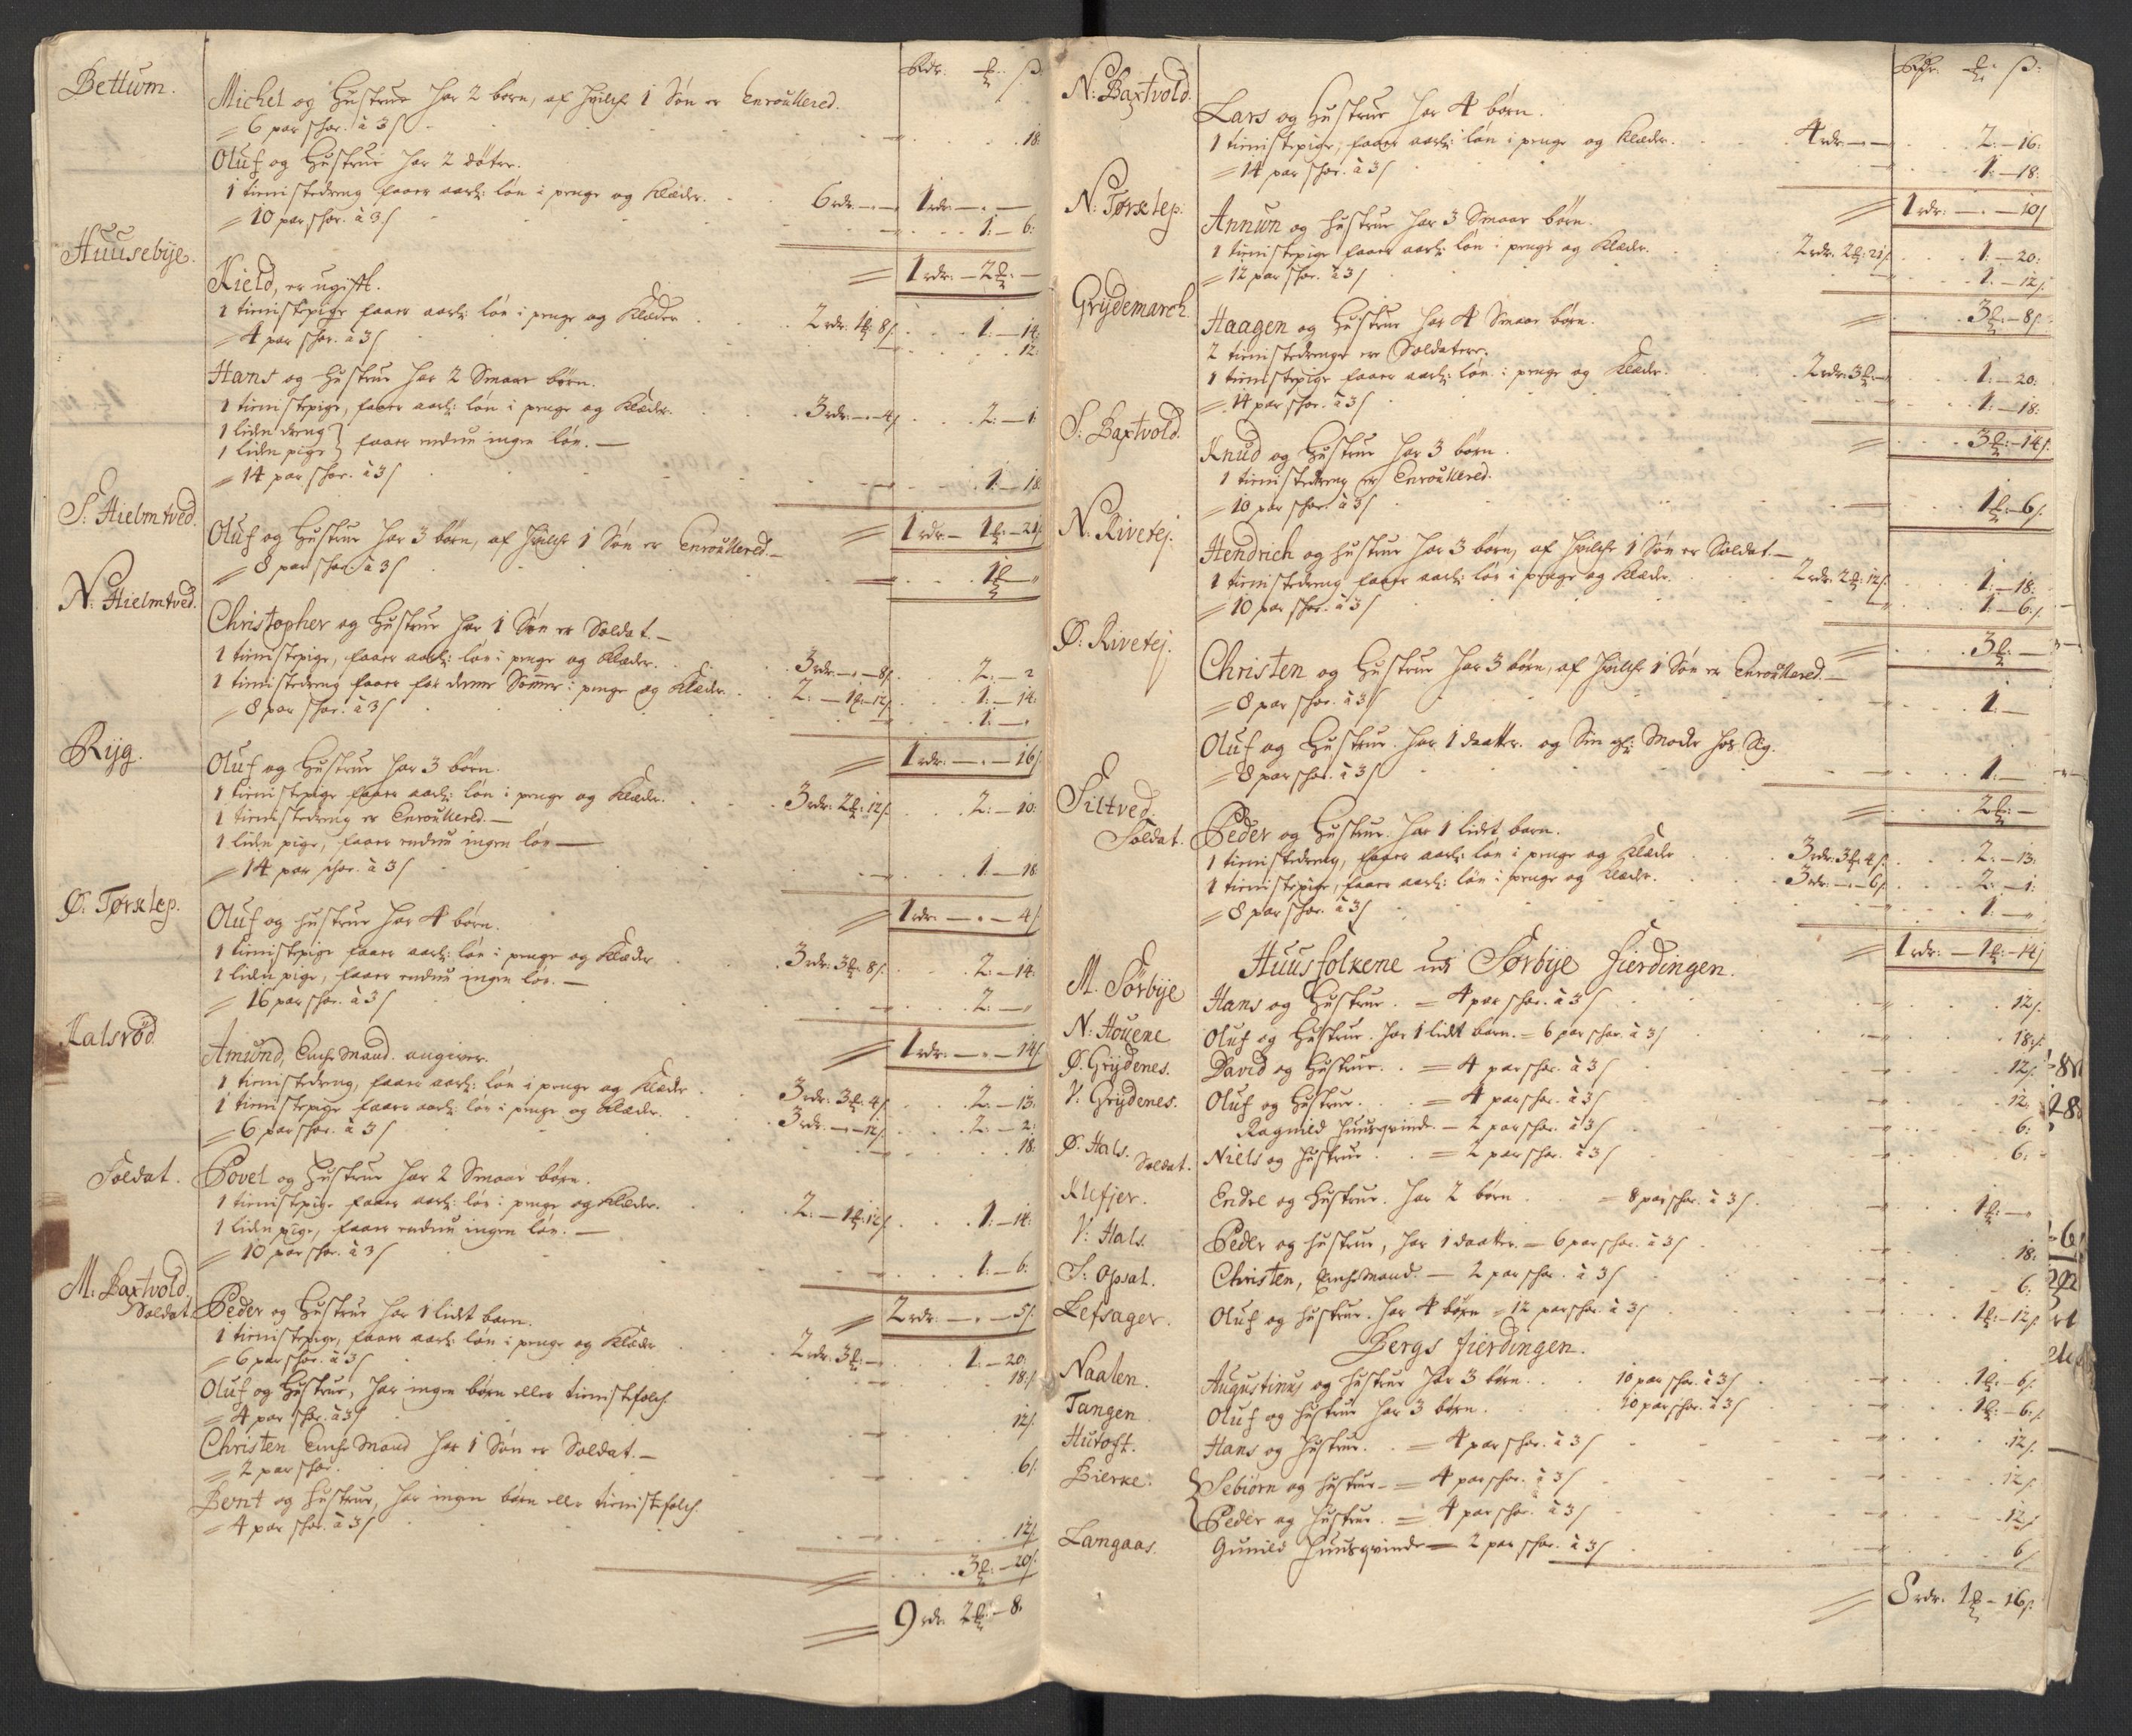 Rdr. ℔. ß.
Bettum.
Michel og Hustrue har 2 børn, af hvilche 1 Søn er Enroullered.
= 6 par schoe. à 3 s — 18:
Oluf og Hustrue har 2 døtre.
1 tienistedreng faaer aarl: løn i penge og Klæder. 6 rdr. — — 1 rdr — . —
= 10 par schoe. à 3 s — 1: — 6:
= 1 rdr. — 2 ℔. —
Huusebye.
Kield, er ugifft.
1 tienistepige faaer aarl: løn i penge og Klæder 2 rdr. 1 ℔. 8 s. 1: — 14:
= 4 par schoe. à 3 s — 12:
Hans og Hustrue har 2 Smaae børn.
1 tienistepige, faaer aarl: løn i penge og Klæder. 3 rdr. — . — 4 s. 2: — 1
1 liden dreng } faaer endnu ingen løn. —
1 liden pige
= 14 par schoe. à 3 s — 1: — 18
= 1 rdr — 1 ℔. — 21 s.
S: Hielmtved.
Oluf og Hustrue har 3 børn, af hvilche 1 Søn er Enroullered. —
= 8 par schoe à 3 s — 1 ℔. —
N: Hielmtved.
Christopher og Hustrue har 1 Søn er Soldat. —
1 tienistepige, faaer aarl: løn i penge og Klæder. 3 rdr. — . — 8 s. 2. — 2
1 tienistedreng faaer for denne Sommer i penge og Klæder. 2: — 1 ℔. — 12 s. 1: — 14:
= 8 par schoe. à 3 s — 1: — .
= 1 rdr. — . — 16 s.
Ryg.
Oluf og Hustrue har 3 børn.
1 tienistepige faaer aarl: løn i penge og Klæder. 3 rdr. 2 ℔. 12 s. 2: — 10:
1 tienistedreng er Enroullered. —
1 liden pige, faaer endnu ingen løn —
= 14 par schoe. à 3 s — 1: — 18
= 1 rdr. — . — 4 s.
Ø: Tørslep.
Oluf og hustrue har 4 børn.
1 tienistepige faaer aarl: løn i penge og Klæder 3 rdr. 3 ℔. 8 s. 2: — 14:
1 liden pige, faaer endnu ingen løn. —
= 16 par schoe. à 3 s — 2: —
= 1 rdr. — . — 14 s.
Kalsrød
Amund, Enche Mand. angiver.
1 tienistedreng, faaer aarl: løn i penge og Klæder 3 rdr. 3 ℔. 4 s. 2: — 13:
1 tienistepige faaer aarl: løn i penge og Klæder. 3 rdr. — . — 12 s. 2: — 2:
= 6 par schoe. à 3 s — 18:
Soldat. Povel og Hustrue har 2 Smaae børn.
1 tienistepige faaer aarl: løn i penge og Klæder. 2: — 1 ℔. 12 s. 1: — 14:
1 liden pige, faaer endnu ingen løn. —
= 10 par schoe. à 3 s — 1: — 6:
= 2 rdr: — . — 5 s.
M: Baxtvold.
Soldat. Peder og Hustrue har 1 lidt barn.
1 tienistepige, faaer aarl: løn i penge og Klæder 2 rdr. 3 ℔. — 1: — 20:
= 6 par schoe. à 3 s — 18 s.
Oluf og Hustrue, har ingen børn eller tienistefolch.
= 4 par schoe. à 3 s — 12 s.
Christen Enche Mand har 1 Søn er Soldat. —
= 2 par schoe. — 6 s.
Bent og Hustrue, har ingen børn eller tienistefolch.
= 4 par schoe. à 3 s — 12 s.
= 3 ℔. — 20 s.
= 9 rdr. 2 ℔. — 8.
Rdr. ℔. ß:
N: Baxtvold.
Lars og Hustrue har 4 børn.
1 tienistepige, faaer aarl: løn i penge og Klæder. 4 rdr. — — 2. — 16:
= 14 par schoe. à 3 s — 1: — 18:
= 1 rdr: — . — 10 s
N: Tørslep.
Annun og hustrue har 3 Smaae børn.
1 tienistepige faaer aarl: løn i penge og Klæder. 2 rdr. 2 ℔. 21 s. 1: — 20:
= 12 par schoe. à 3 s — 1: — 12 s.
= 3 ℔. — 8 s.
Grydemarch.
Haagen og Hustrue har 4 Smaae børn.
2 tienistedrenge ere Soldatere.
1 tienistepige faaer aarl: løn i penge og Klæder. 2 rdr. 3 ℔. — 1: — 20:
= 14 par schoe. à 3 s — 1: — 18:
= 3 ℔. — 14 s.
S: Baxtvold.
Knud og Hustrue har 3 børn.
1 tienistedreng er Enroullered.
= 10 par schoe. à 3 s — 1 ℔. — 6 s.
N: Rivetej:
Hendrich og hustrue har 3 børn, af hvilche 1 Søn er Soldat —
1 tienistedreng faaer aarl: løn i penge og Klæder. 2 rdr. 2 ℔. 12 s. 1: — 18:
= 10 par schoe. à 3 s — 1: — 6 s.
= 3 ℔. —
Ø: Rivetej.
Christen og Hustrue har 3 børn, af hvilche 1 Søn er Enroullered —
= 8 par schoe. à 3 s — 1: —
Oluf og Hustrue. har 1 daatter. og Sin gl: Moder hos Sig.
= 8 par schoe. à 3 s — 1: —
= 2 ℔. —
Siltved
Soldat. Peder og Hustrue. har 1 lidet barn.
1 tienistedreng, faaer aarl: løn i penge og Klæder 3 rdr. 3 ℔. 4 s. 2: — 13:
1 tienistepige, faaer aarl: løn i penge og Klæder. 3 rdr. — . — 6 s. 2: — 1:
= 8 par schoe. à 3 s — 1: —
= 1 rdr: — 1 ℔. — 14 s
Huusfolkene udi Sørbye Fierdingen.
M. Sørbye Hans og Hustrue. = 4 par schoe. à 3 s — 12 s.
N: Houene Oluf og Hustrue. har 1 lidt barn. = 6 par schoe. à 3 s — 18 s.
Ø: Grydenes. David og Hustrue. = 4 par schoe. à 3 s — 12 s.
V: Grydenes. Oluf og Hustrue. = 4 par schoe. à 3 s — 12.
Ragnild huusqvinde. — 2 par schoe. à 3 s — 6:
Ø: Hals. Soldat. Niels og Hustrue. = 2 par schoe. à 3 s — 6:
Klefjer. Endre og Hustrue. har 2 børn. = 8 par schoe. à 3 s. 1 ℔. —
V: Hals. Peder og hustrue, har 1 daatter. — 6 par schoe. à 3 s — 18:
S: Opsal. Christen, Enche Mand. — 2 par schoe. à 3 s — 6:
Lefsager. Oluf og hustrue. har 4 børn = 12 par schoe. à 3 s — 1 ℔. — 12 s.
Bergs fierdingen.
Naalen. Augustinus og hustrue har 3 børn. 10 par schoe. à 3 s — 1 ℔. — 6 s.
Tangen. Oluf og hustrue har 3 børn. 10 par schoe. à 3 s — 1 ℔. — 6. s.
Hutoft. Hans og Hustrue. = 4 par schoe. à 3 s — 12 s.
Bierke. Sebiørn og hustrue — = 4 par schoe. à 3 s — 12 s.
Peder og Hustrue. = 4 par schoe. à 3 s — 12 s.
Langaas. Gunild huusqvinde = 2 par schoe. à 3 s — 6 s.
= 8 rdr. 1 ℔ — 16 s.